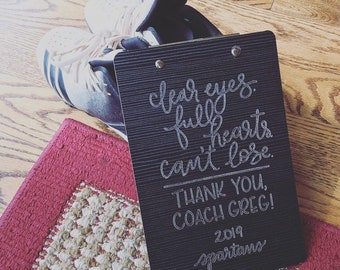 clear eyes.
full
hearts
can't lose.
THANK YOU,
COACH GREG!
2019
spartans